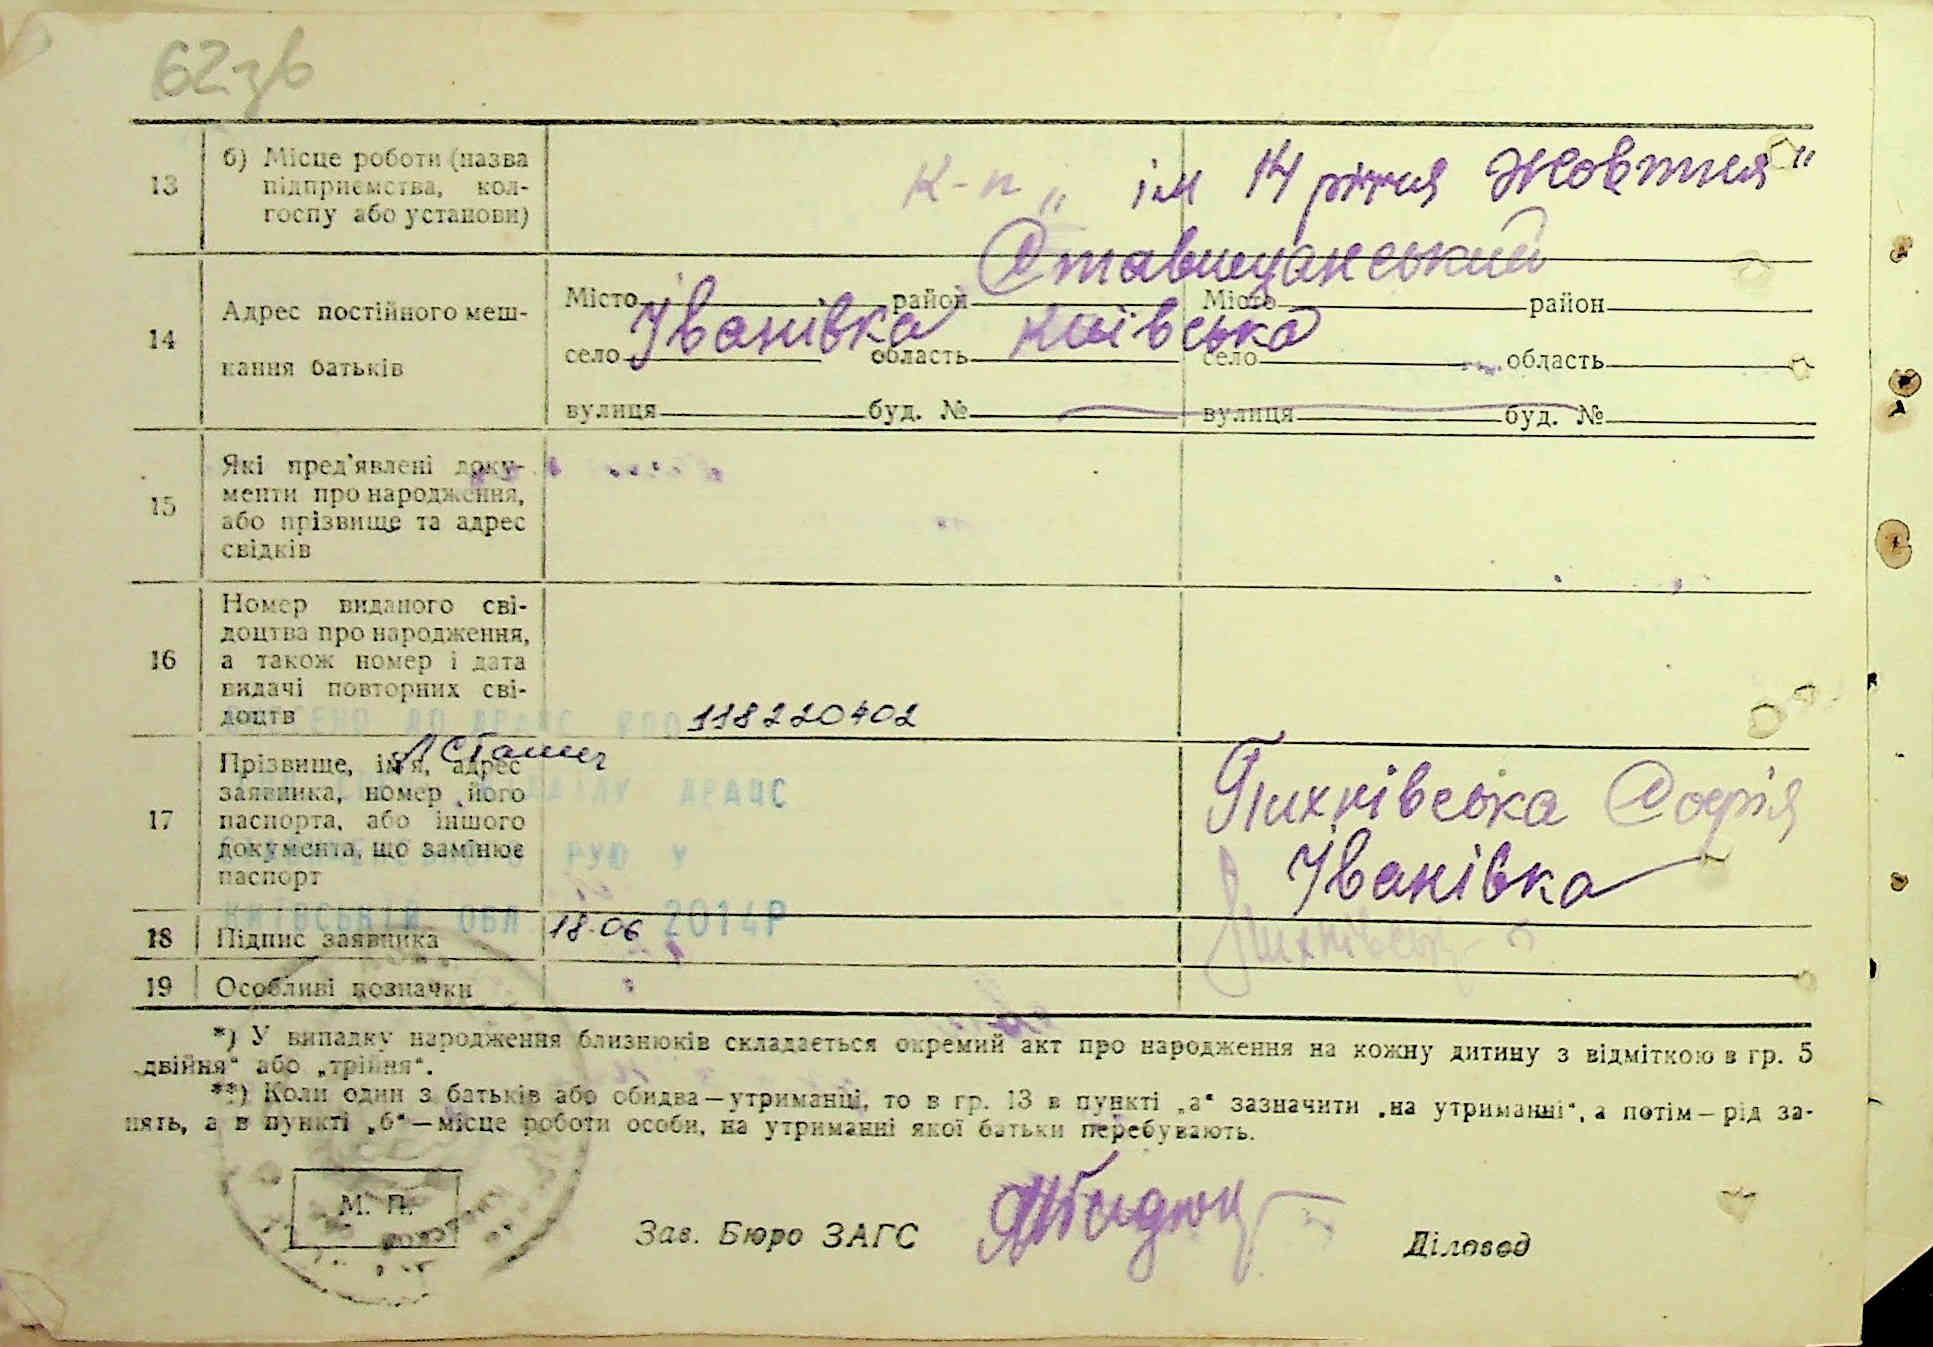 62зв
13 б) Місце роботи (назва підприємства, кол-
госпу або установи)
к-п „ ім 14 річчя Жовтня"
Ставищанський
14 Адрес постійного меш-
кання батьків
Місто район Місто район
село Іванівка область Київська село область
вулиця буд. № вулиця буд. №
15 Які пред'явлені доку-
менти про народження,
або прізвище та адрес
свідків
16 Номер виданого сві-
доцтва про народження,
а також номер і дата
видачі повторних сві-
доцтв
118220402
17 Прізвище, ім'я, адрес
заявника, номер його
паспорта, або іншого
документа, що замінює
паспорт
ДРАЦС
РУЮ У
КИЇВСЬКІЙ ОБЛ 18.06 2014Р
Пихнівська Софія
Іванівка
18 Підпис заявника
19 Особливі позначки
*) У випадку народження близнюків складається окремий акт про народження на кожну дитину з відміткою в гр. 5
„двійня" або „трійня".
**) Коли один з батьків або обидва—утриманці, то в гр. 13 в пункті „а" зазначити „на утриманні", а потім—рід за-
нять, а в пункті „б"—місце роботи особи, на утриманні якої батьки перебувають.
М. П.
Зав. Бюро ЗАГС
Діловод